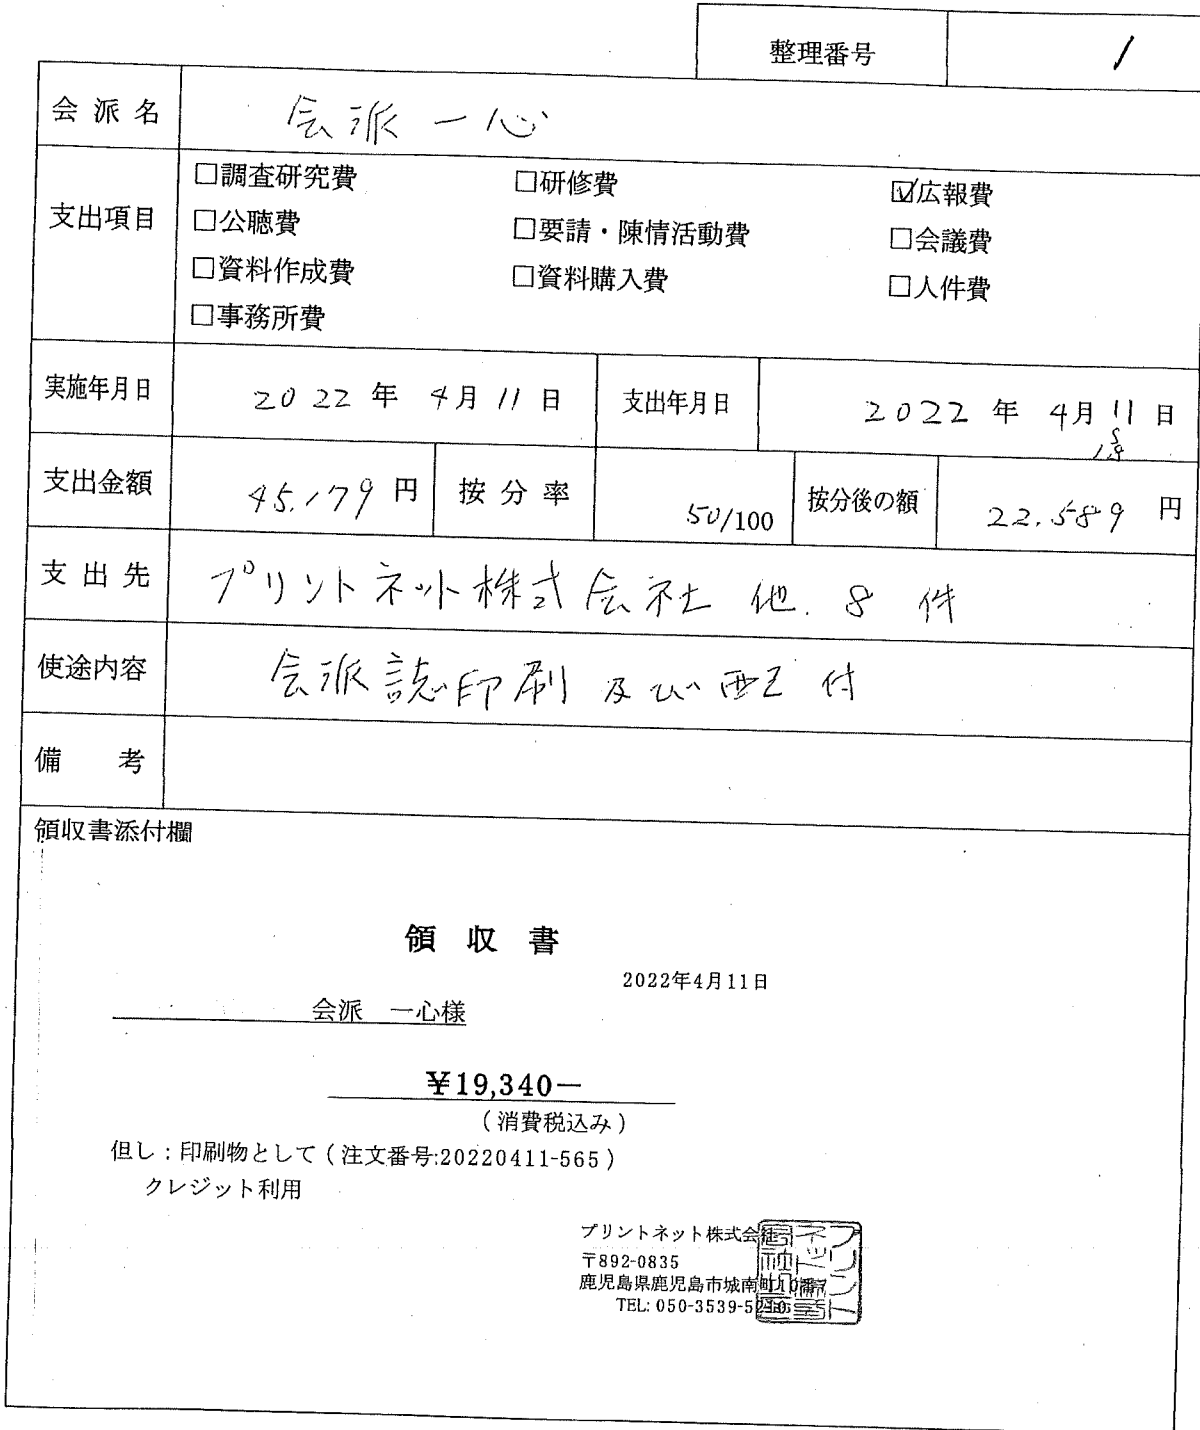 整理番号 1
会派名 会派一心
支出項目
□調査研究費 □研修費 ☑広報費
□公聴費 □要請・陳情活動費 □会議費
□資料作成費 □資料購入費 □人件費
□事務所費
実施年月日 2022年4月11日 支出年月日 2022年4月11日
支出金額 45,179円 按分率 50/100 按分後の額 22,589円
支出先 プリントネット株式会社 他.8件
使途内容 会派誌印刷及び配付
備考
領収書添付欄
領収書
2022年4月11日
会派 一心様
¥19,340-
(消費税込み)
但し:印刷物として(注文番号:20220411-565)
クレジット利用
プリントネット株式会社
〒892-0835
鹿児島県鹿児島市城南町10番7
TEL: 050-3539-5210